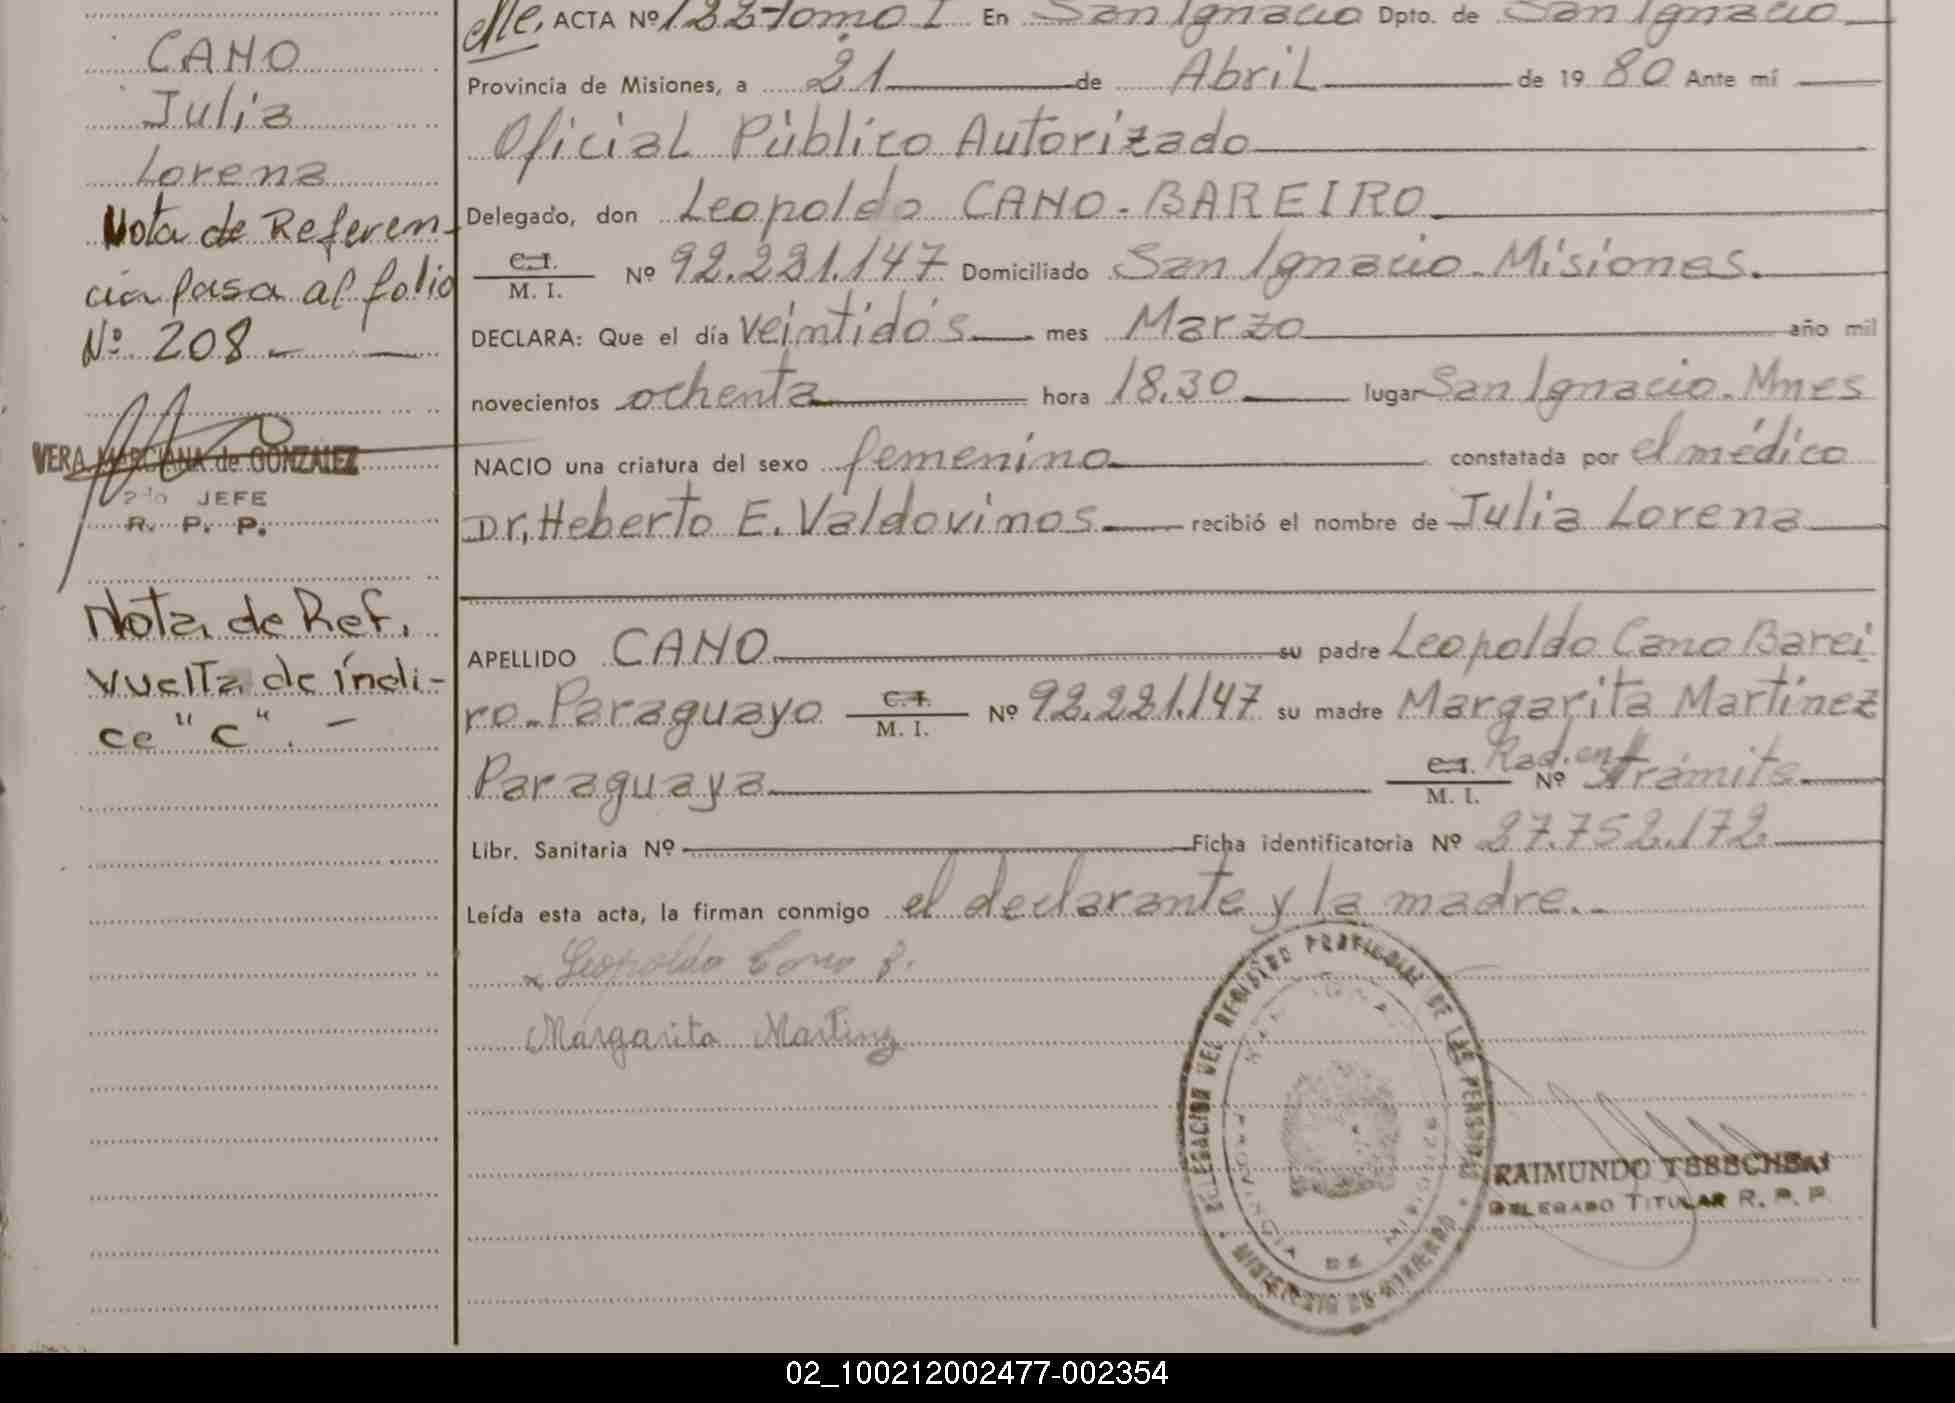 CANO
Julia
Lorena
Nota de Referen-
cia pasa al folio
Nº 208.-
VERA MARCIANA de GONZALEZ
2do JEFE
R. P. P.
Nota de Ref.
vuelta de índi-
ce "C". -
ACTA Nº 122-Tomo I En San Ignacio Dpto. de San Ignacio
Provincia de Misiones, a 21 de Abril de 1980 Ante mí
Oficial Público Autorizado
Delegado, don Leopoldo CANO-BAREIRO
C.I. M. I. Nº 92.221.147 Domiciliado San Ignacio-Misiones.
DECLARA: Que el día veintidós mes Marzo año mil
novecientos ochenta hora 18,30 lugar San Ignacio-Mnes
NACIO una criatura del sexo femenino constatada por el médico
Dr, Heberto E. Valdovinos recibió el nombre de Julia Lorena
APELLIDO CANO su padre Leopoldo Cano Barei
ro-Paraguayo C.I. M. I. Nº 92.221.147 su madre Margarita Martinez
Paraguaya C.I. M. I. Nº Rad. en trámite
Libr. Sanitaria Nº Ficha identificatoria Nº 27.752.172
Leída esta acta, la firman conmigo el declarante y la madre.-
Leopoldo Cano B.
Margarita Martinez
DELEGACION DEL REGISTRO PROVINCIAL DE LAS PERSONAS
MINISTERIO DE GOBIERNO
PROVINCIA DE MISIONES
RAIMUNDO
DELEGADO TITULAR R. P. P.
02_100212002477-002354